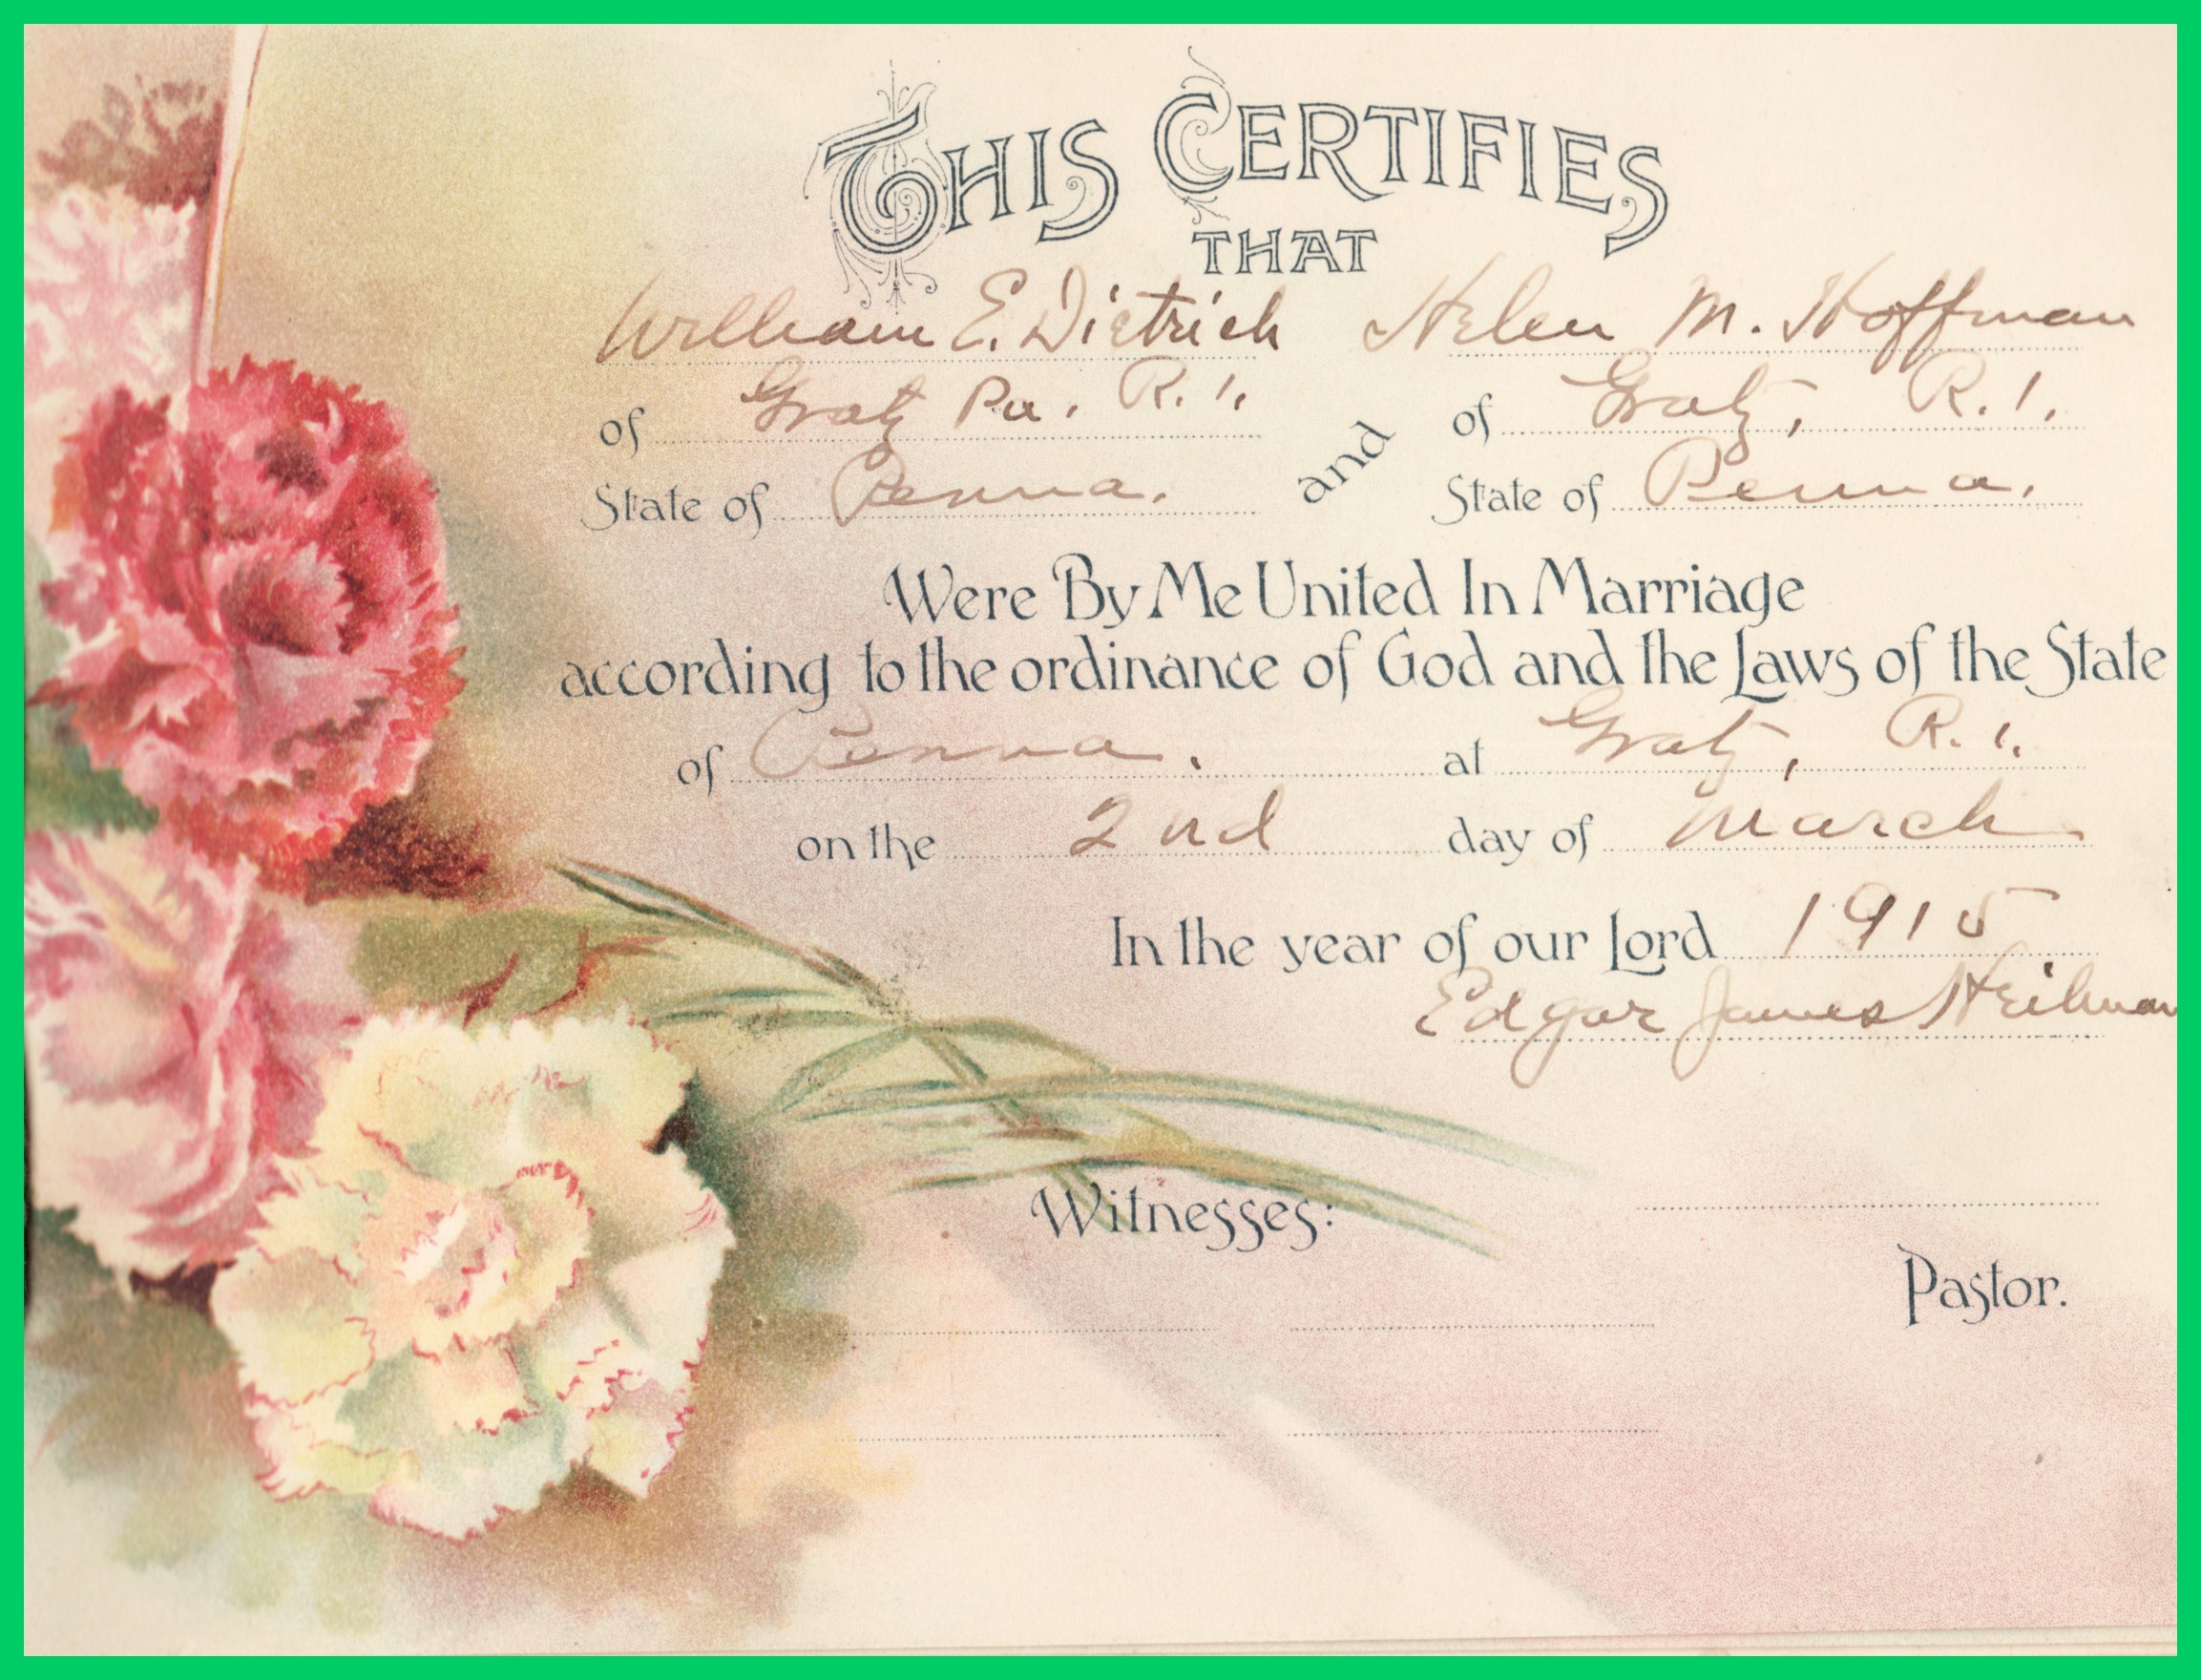 THIS CERTIFIES
THAT
William E. Dietrich Helen M. Hoffman
of Gratz Pa. R. 1. and of Gratz, R. 1.
State of Penna. State of Penna.
Were By Me United In Marriage
according to the ordinance of God and the Laws of the State
of Penna. at Gratz, R. 1.
on the 2nd day of March
In the year of our Lord 1915
Edgar James Heilman
Witnesses:
Pastor.